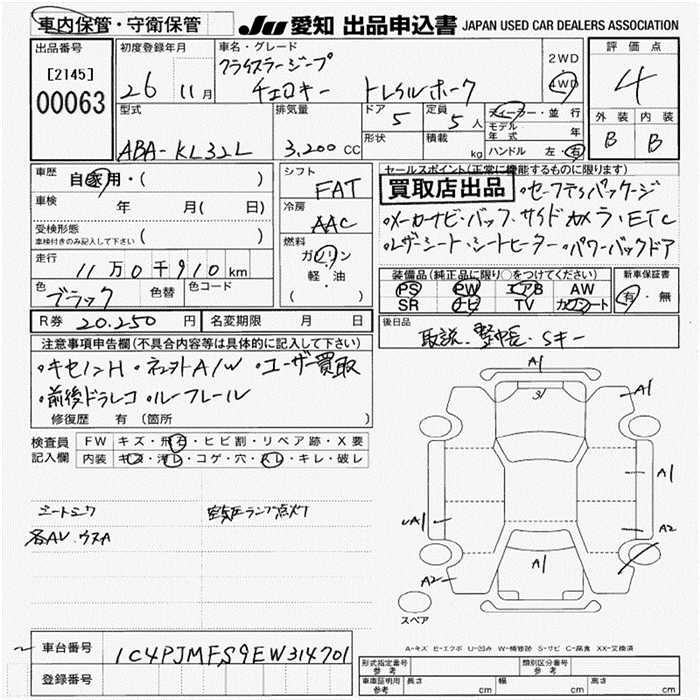 車内保管・守衛保管
JU 愛知 出品申込書 JAPAN USED CAR DEALERS ASSOCIATION
出品番号
[2145]
00063
初度登録年月
26 11月
車名・グレード
クライスラージープ
チェロキー トレイルホーク
2WD
4WD
評価点
4
外装 内装
B B
型式
ABA-KL32L
排気量
3,200 CC
ドア
5
形状
定員
5人
積載
kg
ディーラー・並行
モデル年式 年
ハンドル 左・右
車歴
自家用・( )
車検 年 月( 日)
受検形態
車検付きのみ記入して下さい ( )
走行
11万0千910km
色
ブラック
色替
色コード
シフト
FAT
冷房
AAC
燃料
ガソリン
・
軽・油
( )
セールスポイント(正常に機能するものに限ります)
買取店出品 ・セーフティパッケージ
・メーカーナビ・バック・サイドカメラ・ETC
・レザーシート・シートヒーター・パワーバックドア
装備品(純正品に限り○をつけてください)
PS PW エアB AW
SR ナビ TV カワシート
新車保証書
有・無
R券 20.250円 名変期限 月 日
後日品
取説.整中長.Sキー
注意事項申告欄(不具合内容等は具体的に記入して下さい)
・キセノンH ・ネットA/W ・ユーザー買取
・前後ドラレコ ・ルーフレール
修復歴 有 (箇所 )
検査員
記入欄
FW キズ・飛石・ヒビ割・リペア跡・X要
内装 キズ・汚レ・コゲ・穴・スレ・キレ・破レ
シートシワ 空気圧ランプ点灯
各AU.ウスA
A1
3
A1
A1
UA1
A2
A1
A2
スペア
A-キズ E-エクボ U-凹み W-補修跡 S-サビ C-腐食 XX-交換済
車台番号 1C4PJMFS9EW314701
登録番号
形式指定番号
参考
類別区分番号
参考
車庫証明用
参考
長さ cm 幅 cm 高さ cm